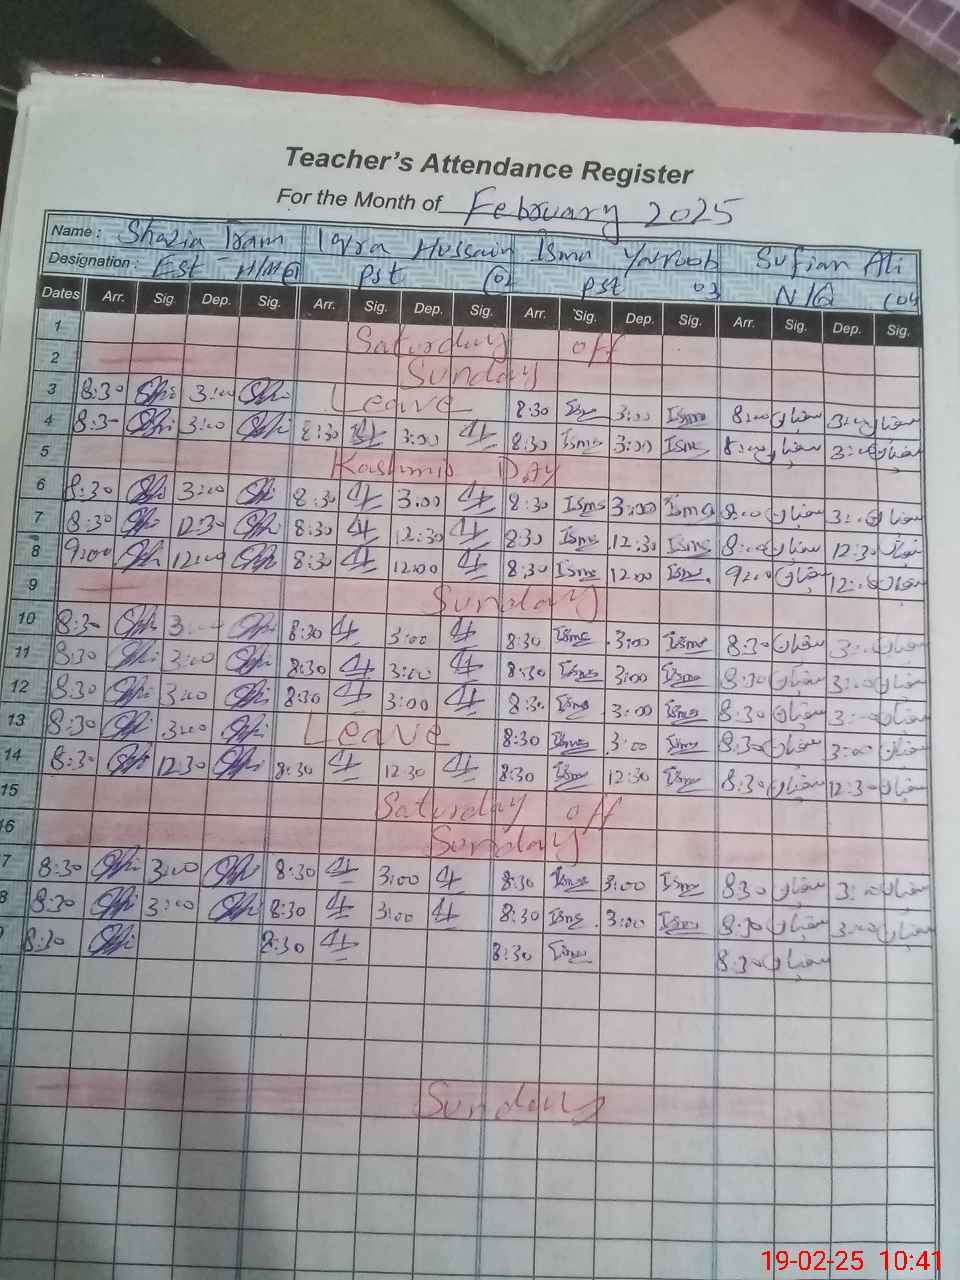 Teacher's Attendance Register
For the Month of February 2025
Name: Shazia Iram Iqra Hussain Isma Yaqoob Sufian Ali
Designation: Est H/M 01 Pst 02 Pst 03 N/Q 04
Dates Arr. Sig. Dep. Sig. Arr. Sig. Dep. Sig. Arr. Sig. Dep. Sig. Arr. Sig. Dep. Sig.
1 Saturday off
2 Sunday
3 8:30 3:00 Leave 8:30 Isma 3:00 Isma 8:00 سفیان 3:00 سفیان
4 8:30 3:00 8:30 3:00 8:30 Isma 3:00 Isma 8:00 سفیان 3:00 سفیان
5 Kashmir Day
6 8:30 3:00 8:30 3:00 8:30 Isma 3:00 Isma 8:00 سفیان 3:00 سفیان
7 8:30 12:30 8:30 12:30 8:30 Isma 12:30 Isma 8:00 سفیان 12:30 سفیان
8 9:00 12:00 8:30 12:00 8:30 Isma 12:00 Isma 9:00 سفیان 12:00 سفیان
9 Sunday
10 8:30 3:00 8:30 3:00 8:30 Isma 3:00 Isma 8:30 سفیان 3:00 سفیان
11 8:30 3:00 8:30 3:00 8:30 Isma 3:00 Isma 8:30 سفیان 3:00 سفیان
12 8:30 3:00 8:30 3:00 8:30 Isma 3:00 Isma 8:30 سفیان 3:00 سفیان
13 8:30 3:00 Leave 8:30 Isma 3:00 Isma 8:30 سفیان 3:00 سفیان
14 8:30 12:30 8:30 12:30 8:30 Isma 12:30 Isma 8:30 سفیان 12:30 سفیان
15 Saturday off
16 Sunday
7 8:30 3:00 8:30 3:00 8:30 Isma 3:00 Isma 8:30 سفیان 3:00 سفیان
8 8:30 3:00 8:30 3:00 8:30 Isma 3:00 Isma 8:30 سفیان 3:00 سفیان
9 8:30 8:30 8:30 Isma 8:30 سفیان
Sunday
19-02-25 10:41